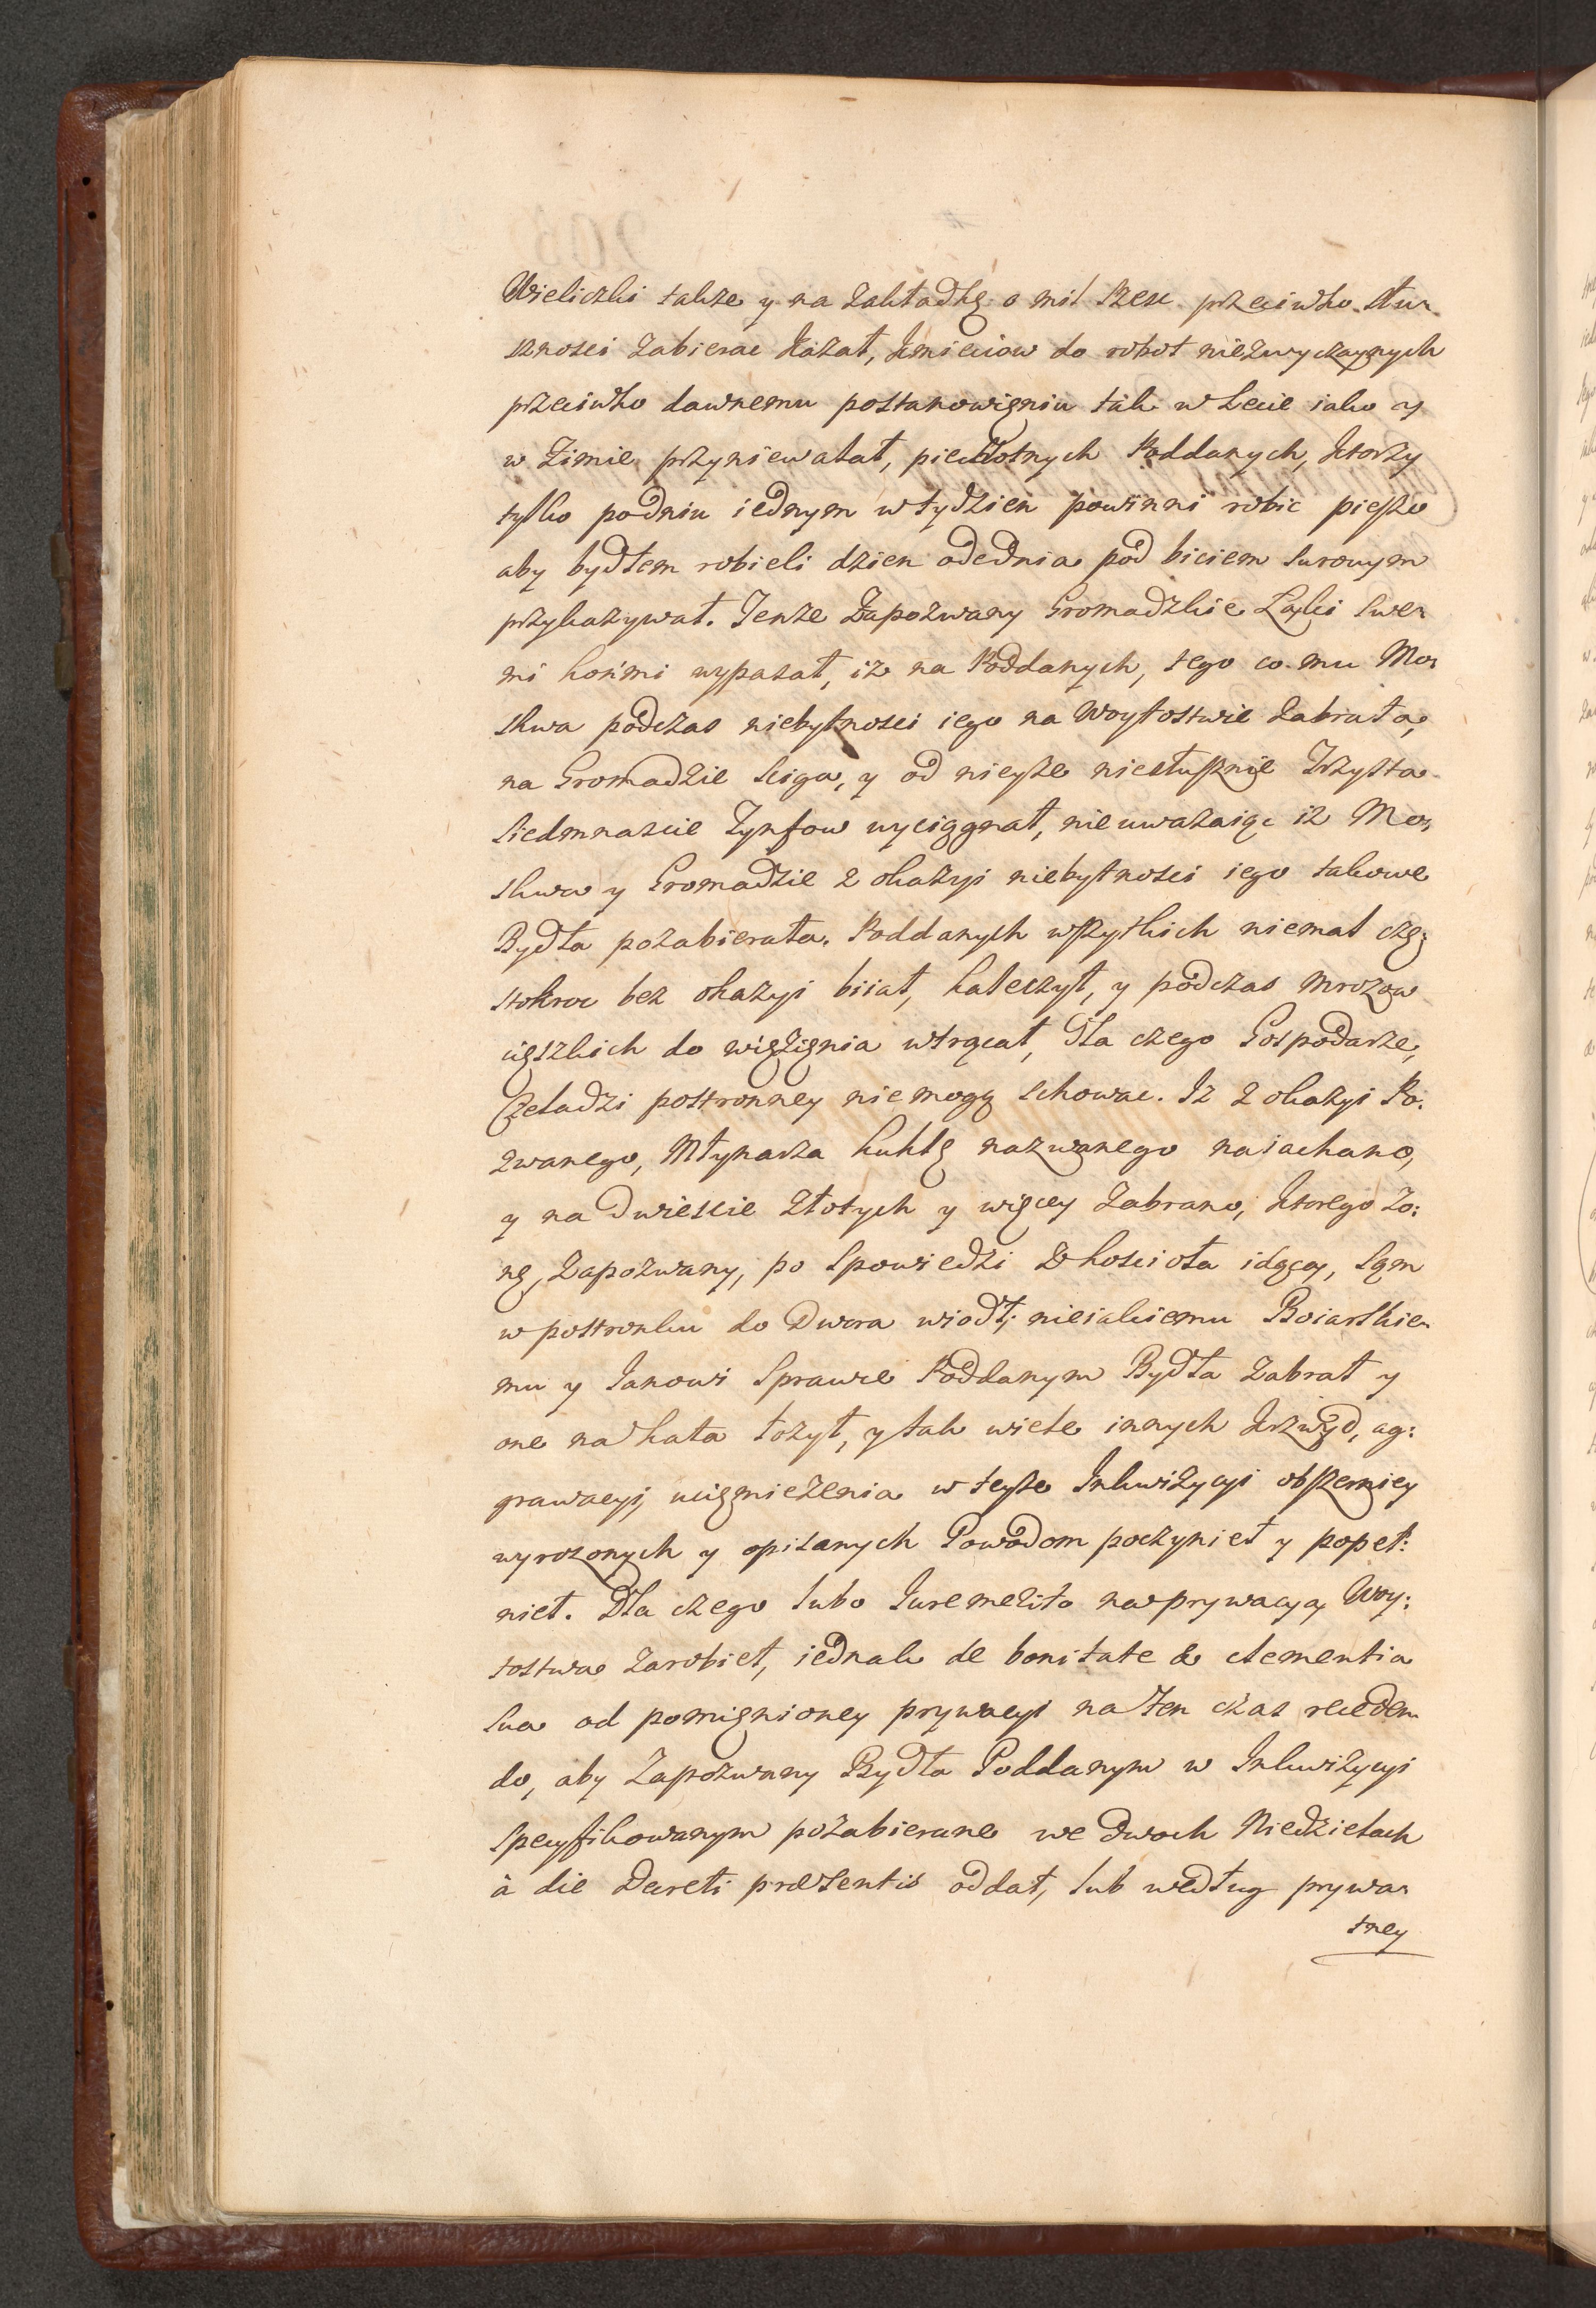 Wieliczki takze y na Zakładkę o mil szesc przeciwko słu-
sznosci Zabierac Kazał, Kmieciow do robot niezwyczaynych
przeciwko dawnemu postanowieniu tak w Lecie iako y
w Zimie przyniewalał, piechotnych Poddanych, ktorzy
tylko podniu iednym w tydzien powinni robic pieszo
aby bydłem robieli dzien odednia pod biciem surowym
przykazywał. Tenze Zapozwany Gromadzkie Łąki swe-
mi końmi wypasał, iz na Poddanych, tego co mu Mo-
skwa podczas niebytnosci iego na Woytostwie Zabrała,
na Gromadzie sciga, y od nieyze niesłusznie Trzysta
siedmnascie Tynfow wyciągnał, nie uwazaiąc iz Mo-
skwa y Gromadzie z okazyi niebytnosci iego takowe
Bydła pozabierała. Poddanych wszytkich niemal czę-
stokroc bez okazyi biiał, kaleczył, y podczas mrozow
cięszkich do więzięnia wtrącał, Dla czego Gospodarze,
Czeladzi postronney niemogą schowac. Iz z okazyi Po-
zwanego, Młynarza Kuklę nazwanego naiachano,
y na Dwiescie złotych y więcey Zabrano, ktorego Zo:
nę, Zapozwany, po Spowiedzi z Koscioła idącą, Sam
w postronku do Dwora wiodł, nieiakiemu Boiarskie-
mu y Janowi Sprawie Poddanym Bydła Zabrał y
one na Kała łozył, y tak wiele innych Krzywd, ag:
grawacyi, uciemiezenia w teyze Inkwizycyi obszerniey
wyrozonych y opisanych Powodom poczynieł y popeł:
nieł. Dla czego lubo Jure melito na prywacyą Woy:
tostwa Zarobieł, iednak de bonitate & clementia
sua od pomięnioney prywacyi na ten czas receden-
do, aby Zapozwany Bydła Poddanym w Inkwizycyi
specyfikowanym pozabierane we dwoch Niedzielach
à die Decreti præsentis oddał, lub według prywa-
tney